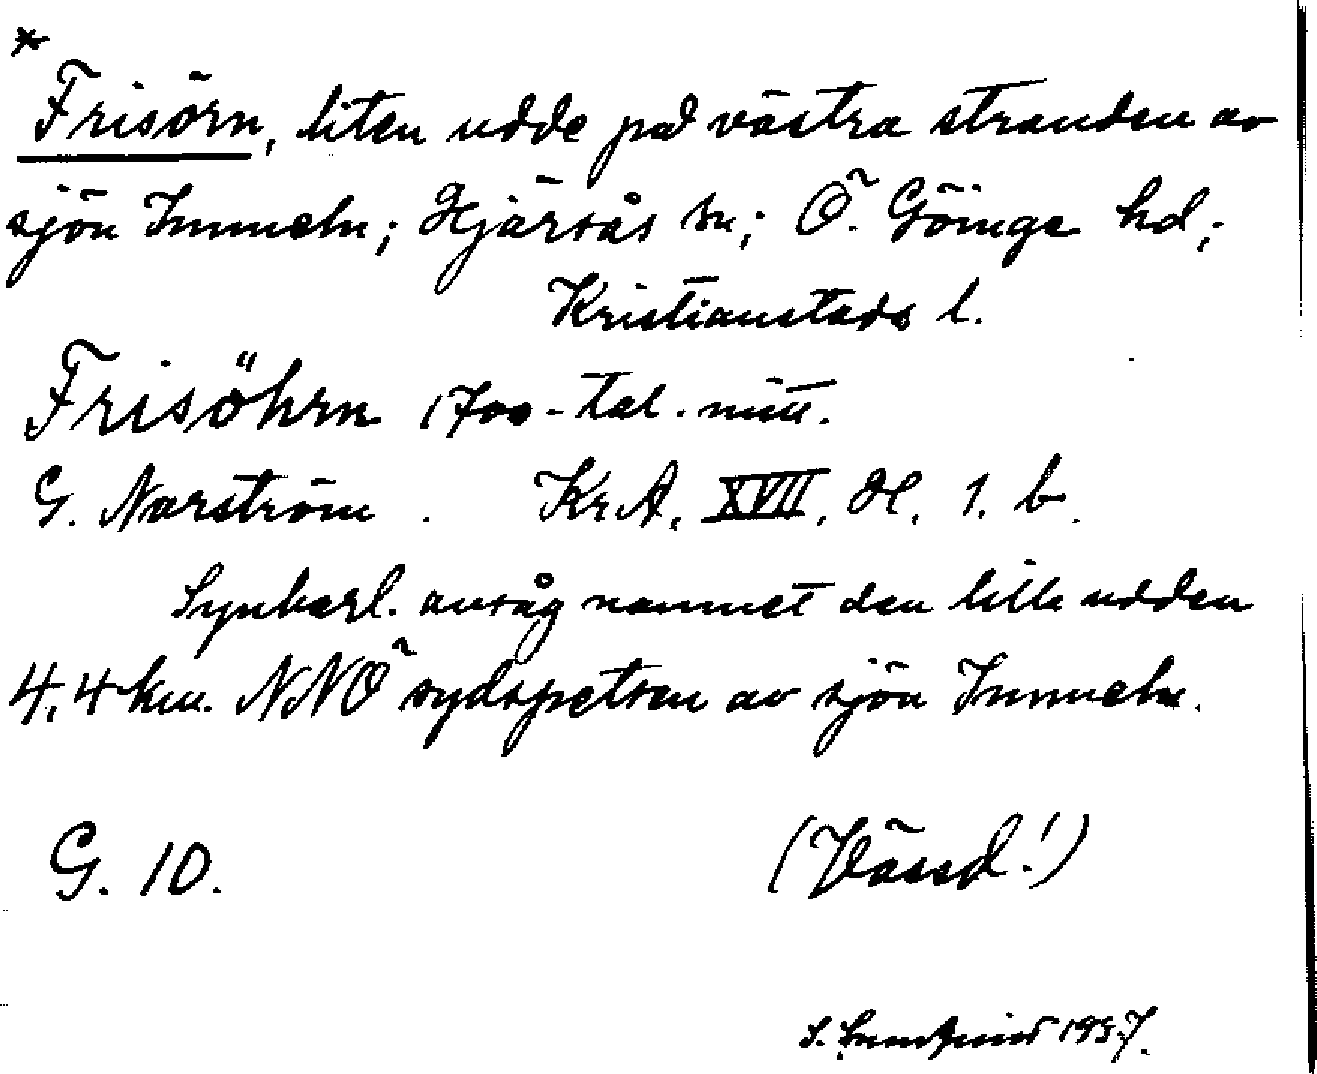 *
Frisörn, liten udde på västra stranden av
sjön Immeln; Hjärsås sn; Ö. Göinge hd;
Kristianstads l.
Frisöhrn 1700-tal. mitt.
G. Narström. KrA, XVII, Hl. 1. b.
Synbarl. avsåg namnet den lilla udden
4,4 km. NNÖ sydspetsen av sjön Immeln.
G. 10. (Vässd!)
S. 1957.